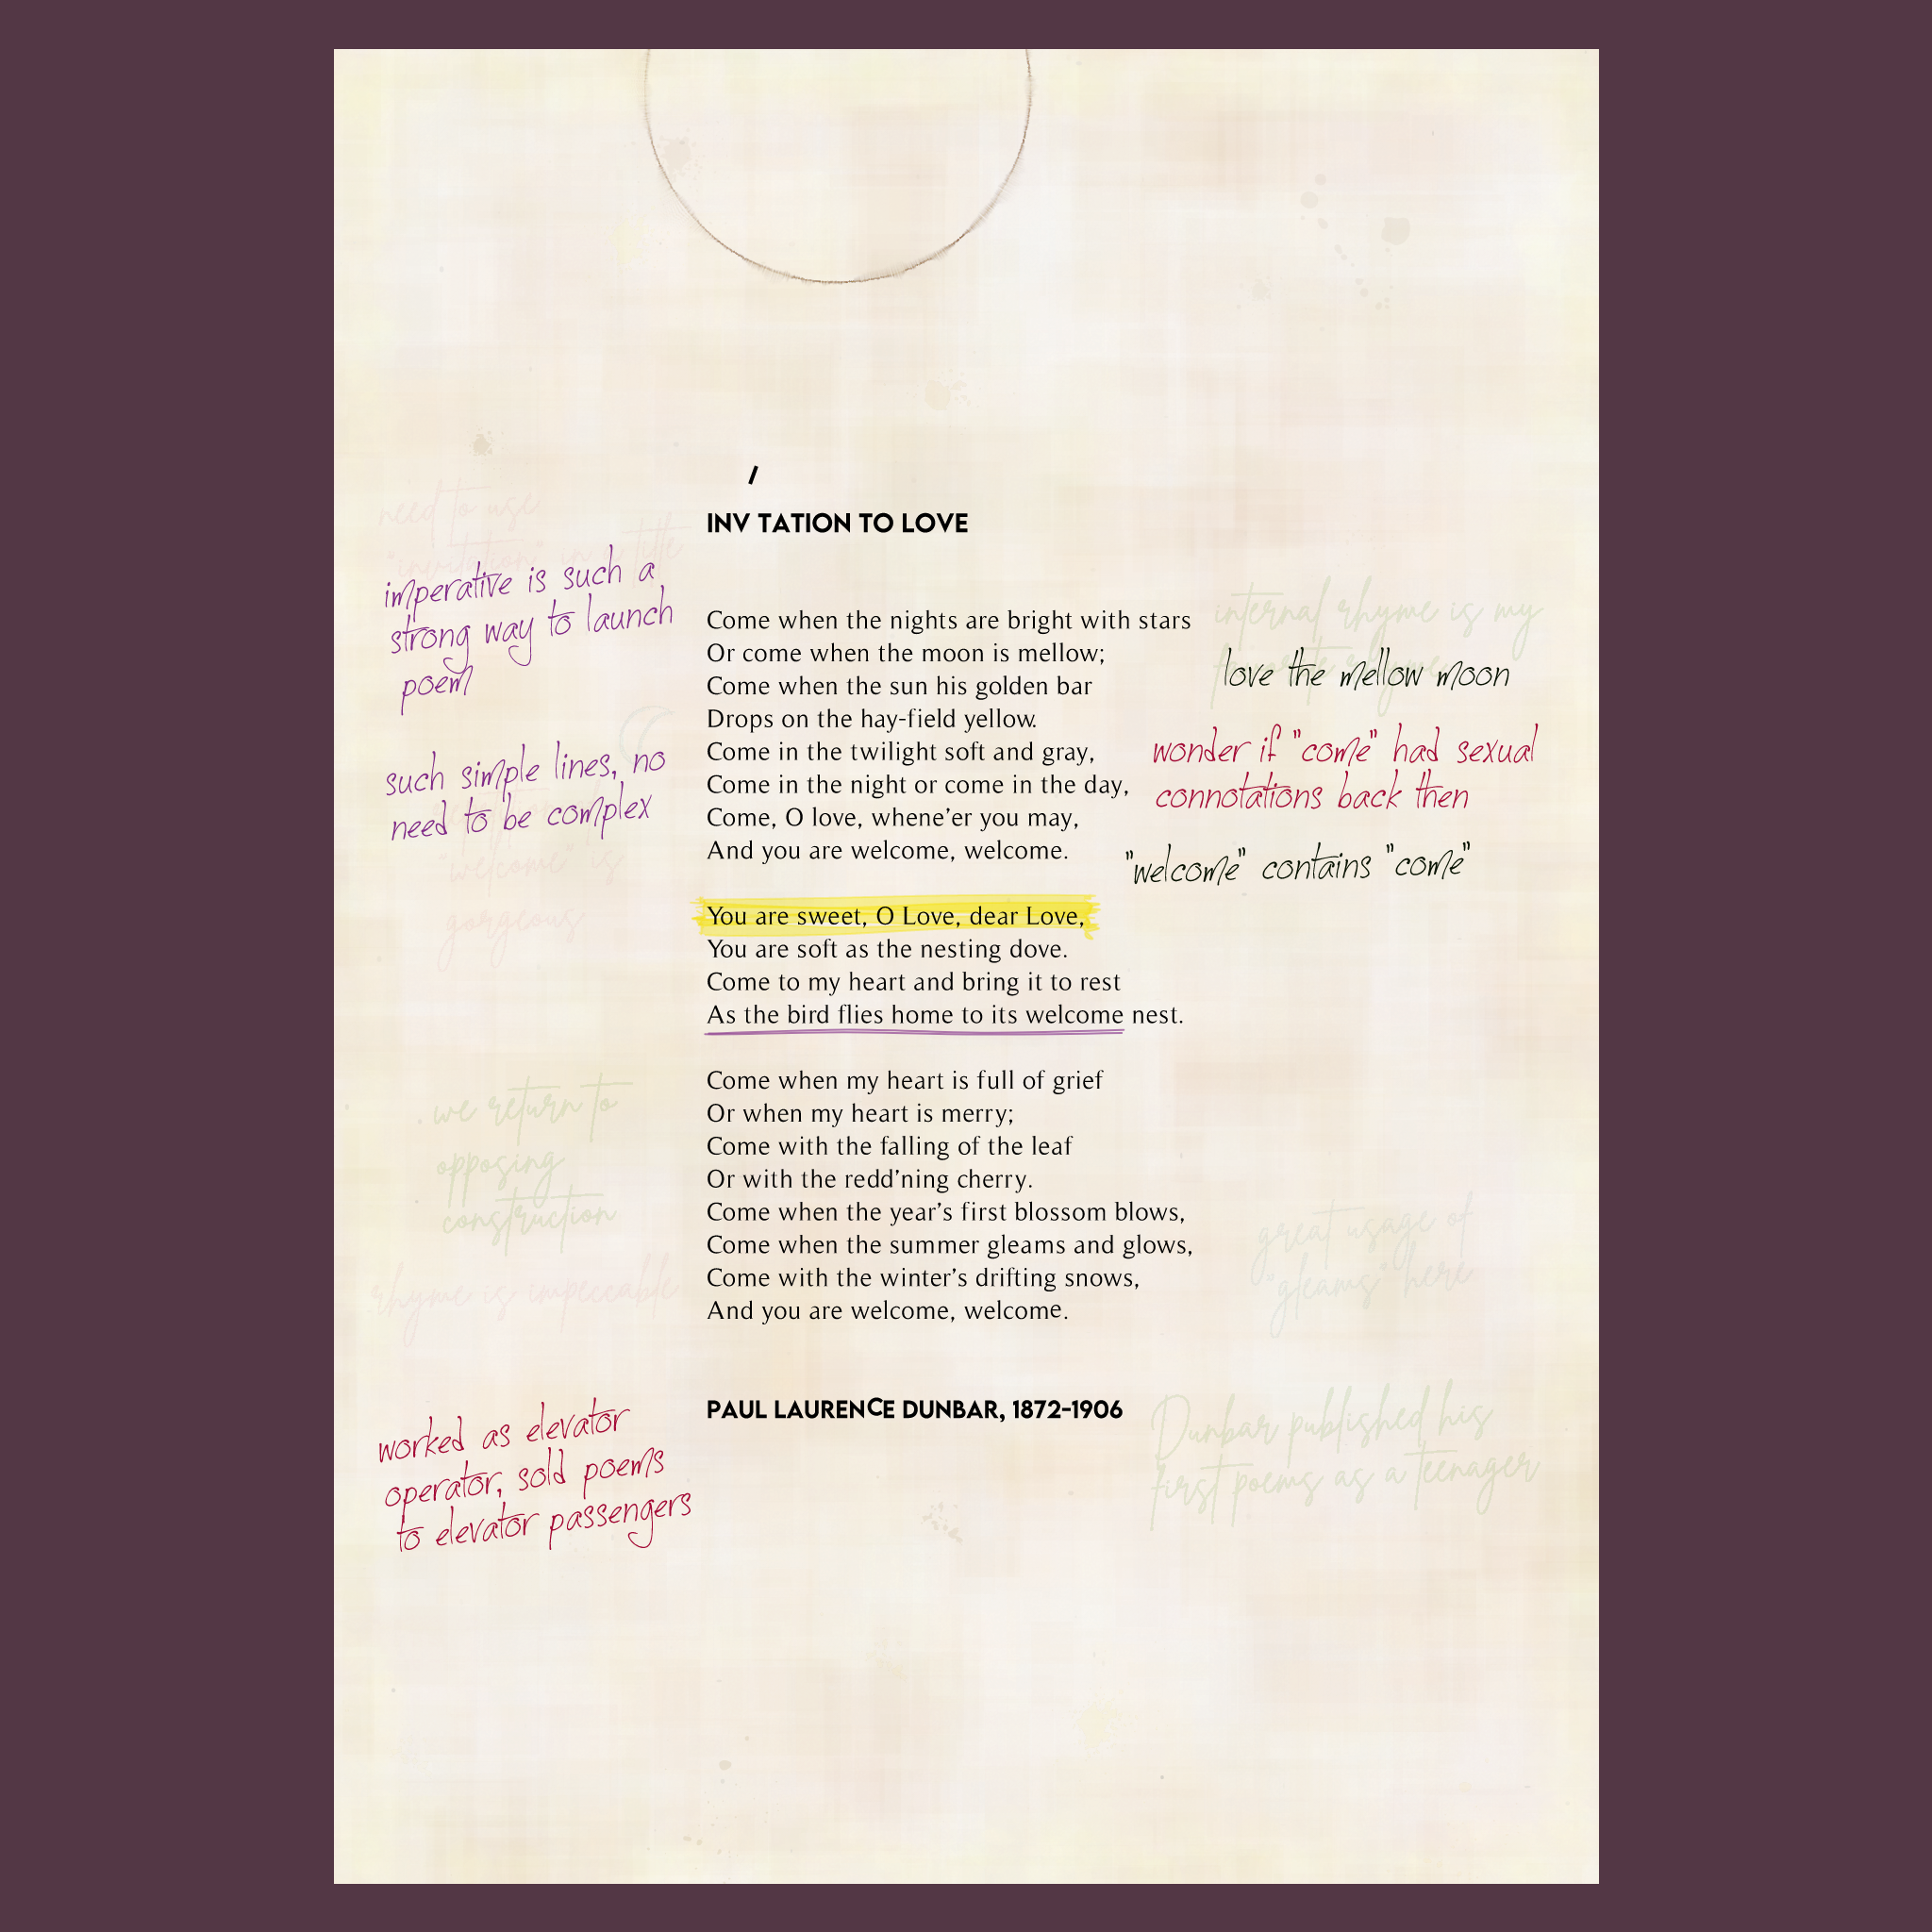 INV TATION TO LOVE
Come when the nights are bright with stars
Or come when the moon is mellow;
Come when the sun his golden bar
Drops on the hay-field yellow.
Come in the twilight soft and gray,
Come in the night or come in the day,
Come, O love, whene’er you may,
And you are welcome, welcome.
You are sweet, O Love, dear Love,
You are soft as the nesting dove.
Come to my heart and bring it to rest
As the bird flies home to its welcome nest.
Come when my heart is full of grief
Or when my heart is merry;
Come with the falling of the leaf
Or with the redd’ning cherry.
Come when the year’s first blossom blows,
Come when the summer gleams and glows,
Come with the winter’s drifting snows,
And you are welcome, welcome.
PAUL LAURENCE DUNBAR, 1872-1906
need to use
"invitation" in a title
imperative is such a
strong way to launch
poem
such simple lines, no
need to be complex
"welcome" is
gorgeous
we return to
opposing
construction
rhyme is impeccable
worked as elevator
operator, sold poems
to elevator passengers
internal rhyme is my
favorite rhyme
love the mellow moon
wonder if "come" had sexual
connotations back then
"welcome" contains "come"
great usage of
"gleams" here
Dunbar published his
first poems as a teenager